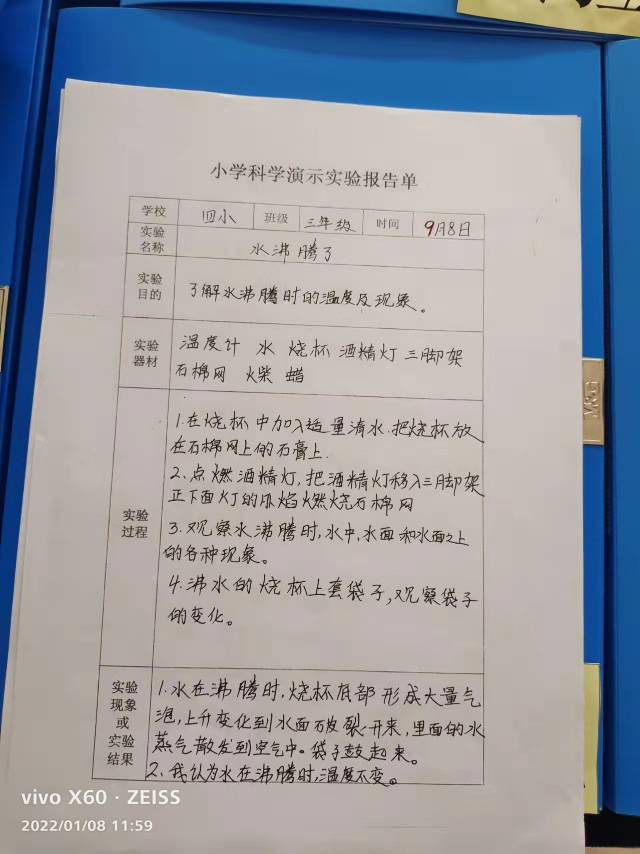 小学科学演示实验报告单
学校 四小 班级 三年级 时间 9月8日
实验名称 水沸腾了
实验目的 了解水沸腾时的温度及现象。
实验器材 温度计 水 烧杯 酒精灯 三脚架
石棉网 火柴 蜡
实验过程
1.在烧杯中加入适量清水.把烧杯放
在石棉网上的石膏上.
2.点燃酒精灯,把酒精灯移入三脚架
正下面灯的外焰燃烧石棉网
3.观察水沸腾时,水中,水面和水面之上
的各种现象。
4.沸水的烧杯上套袋子,观察袋子
的变化。
实验现象或实验结果
1.水在沸腾时,烧杯底部形成大量气
泡,上升变化到水面破裂开来,里面的水
蒸气散发到空气中。袋子鼓起来。
2.我认为水在沸腾时,温度不变。
M&G
vivo X60 · ZEISS
2022/01/08 11:59